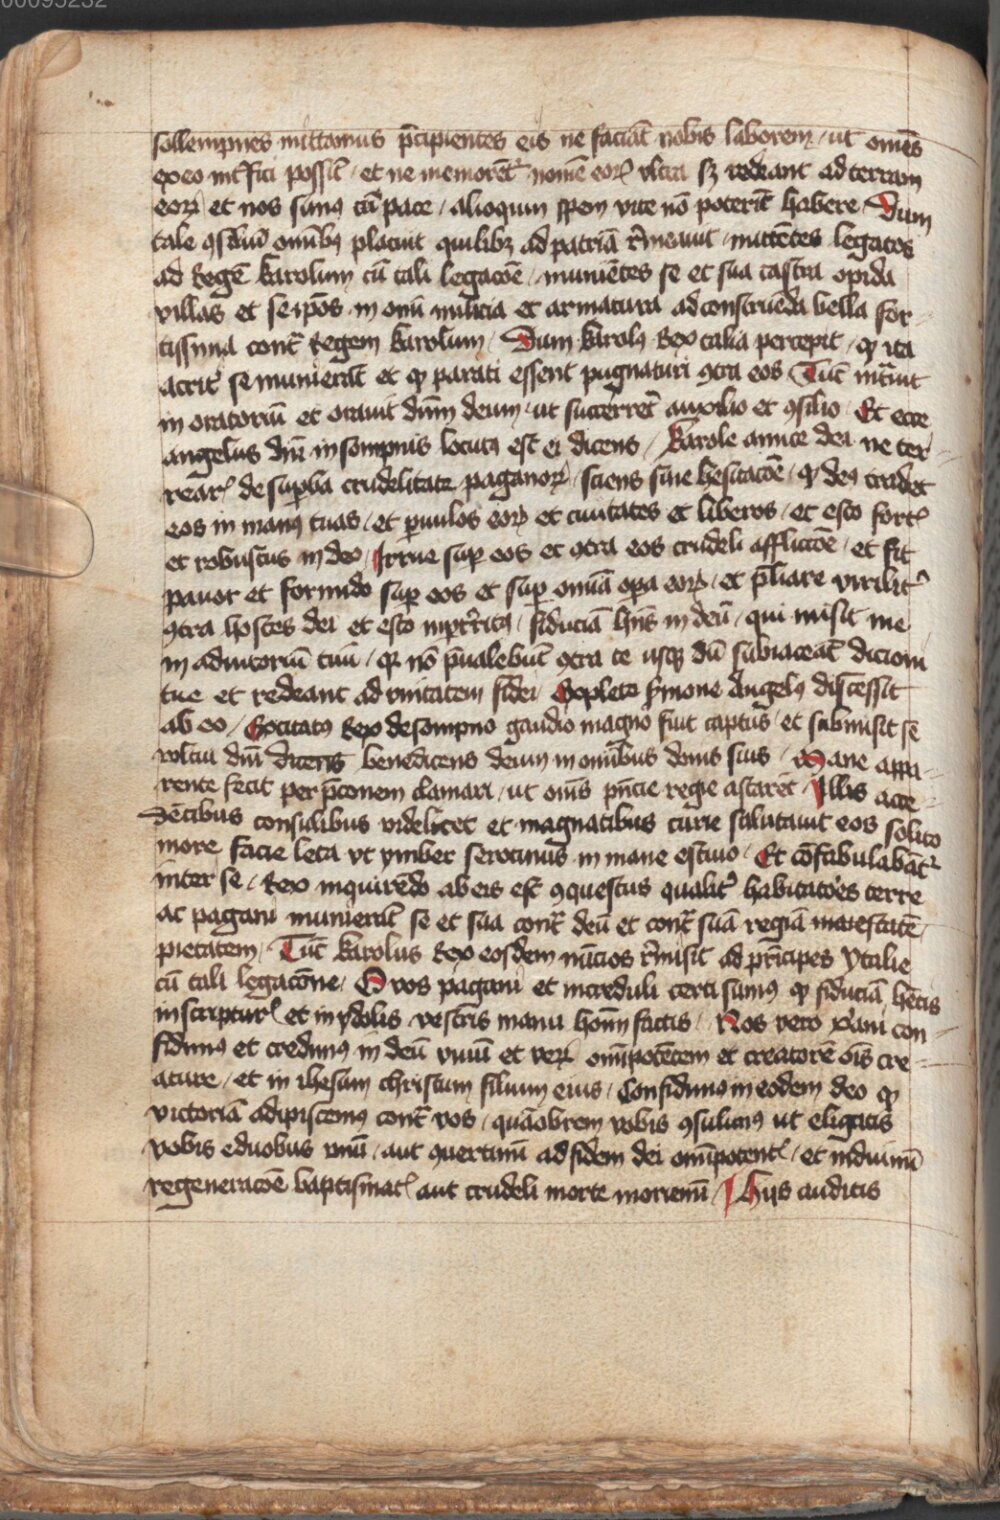 00095232
sollempnes mittamus p̄cipientes eis ne faciāt nobis laborem / ut om̄es
ex eo int̄fici possīt / et ne memorēt᷑ nomē eoꝝ vltra sꝫ redeant ad terram
eoꝝ et nos sumꝰ cū pace / alioquin spem vite nō poterīt habere / Dum
tale ꝯsiliū om̄ibꝫ placuit quilibꝫ ad patriā r̄meauit / mittētes legatos
ad Regē karolum cū tali legacōe / muniētes se et sua castra opida
villas et seip̄os in om̄i milicia et armatura ad construēda bella for-
tissima cont̄ Regem karolum / Dum karolꝰ Rex talia percepit / ꝙ ita
acrit᷑ se munierāt et ꝙ parati essent pugnaturi ꝯtra eos Tūc int̄uit
in oratoriū et orauit dn̄m deum / ut succurret᷑ auxilio et ꝯsilio / Et ecce
angelus dn̄i in sompnis locutꝰ est ei dicens / karole amice dei ne ter-
rearꝭ de suꝑba crudelitate paganoꝝ / sciens sine hesitacōe / ꝙ deꝰ tradet
eos in manꝰ tuas / et ꝑuulos eoꝝ et ciuitates et liberos / et esto fortꝭ
et robustus in deo / Irrue suꝑ eos et ꝯtra eos crudeli afflictōe / et fit
pauor et formido suꝑ eos et suꝑ om̄ia oꝑa eoꝝ / et p̄liare virilit᷑
ꝯtra hostes dei et esto intr̄ritꝰ / fiduciā hn̄s in deū / qui misit me
in adiutoriū tuū / qꝛ nō p̄ualebūt ꝯtra te usqꝫ dū subiaceāt dicioni
tue et redeant ad vnitatem fidei / Expleto s̄mone Angelꝰ discessit
ab eo / Excitatꝰ Rex de sompno gaudio magno fuit captus / et submisit se
dn̄i dicens benedicens deum in om̄ibus donis suis / Mane appa-
rente fecit per p̄conem clamari / ut om̄s pn̄cie regie astarēt / Illis acce-
dētibus consulibus videlicet et magnatibus curie salutauit eos solito
more facie leta vt ymber serotinus in mane estiuo / Et cōfabulabāt᷑
inter se / Rex inquirēdo ab eis est ꝯquestus qualit᷑ habitatōes terre
ac pagani munierāt se et sua cont̄ deū et cont̄ suā regiā maiestatē
pietatem / Tūc karolus Rex eosdem nūcios r̄misit ad prīcipes ytalie
cū tali legacōne / O vos pagani et increduli certi sumꝰ ꝙ fiduciā hētis
in scripturꝭ et in ydolis vestris manu hoīm factis / Nos vero xp̄iani con-
fidimꝰ et credimꝰ in deū viuū et verū om̄ipotētem et creatorē oīs cre-
ature / et in ihesum christum filium eius / Confidimꝰ in eodem deo ꝙ
victoriā adipiscemꝰ cont̄ vos / quāobrem vobis ꝯsulimꝰ ut eligatis
vobis e duobus vnū / aut ꝯuertimī ad fidem dei om̄ipotentꝭ / et induimī
regeneracōe baptismatꝭ aut crudeli morte moriemī / Hijs auditis